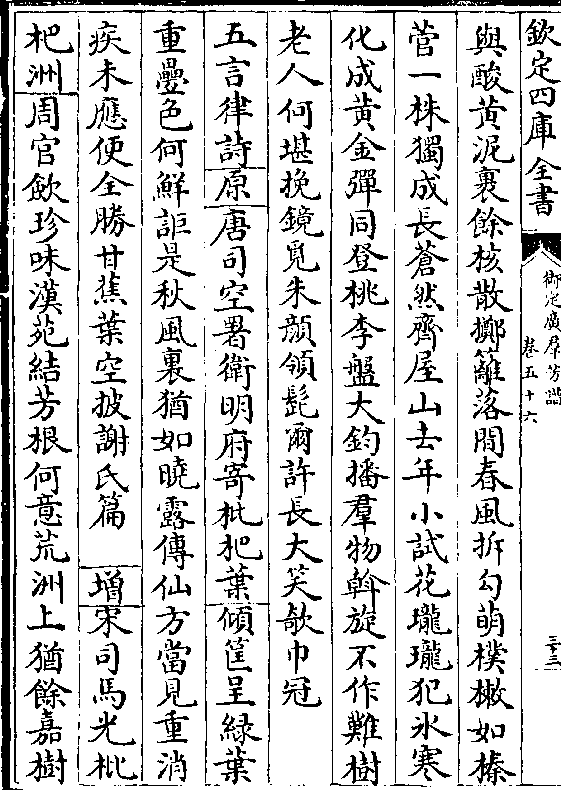 欽定四庫全書
御定廣羣芳譜
卷五十六
三十三
與酸黄泥裹餘核散擲籬落間春風拆勾萌樸樕如榛
菅一株獨成長蒼然齊屋山去年小試花瓏瓏犯氷寒
化成黄金彈同登桃李盤大鈞播羣物斡旋不作難樹
老人何堪挽鏡覓朱顔頷髭爾許長大笑欹巾冠
五言律詩原唐司空署衛明府寄枇杷葉傾筐呈緑葉
重疊色何鮮詎是秋風裏猶如曉露傳仙方當見重消
疾未應便全勝甘蕉葉空披謝氏篇 增宋司馬光枇
杷洲周官飲珍味漢苑結芳根何意荒洲上猶餘嘉樹